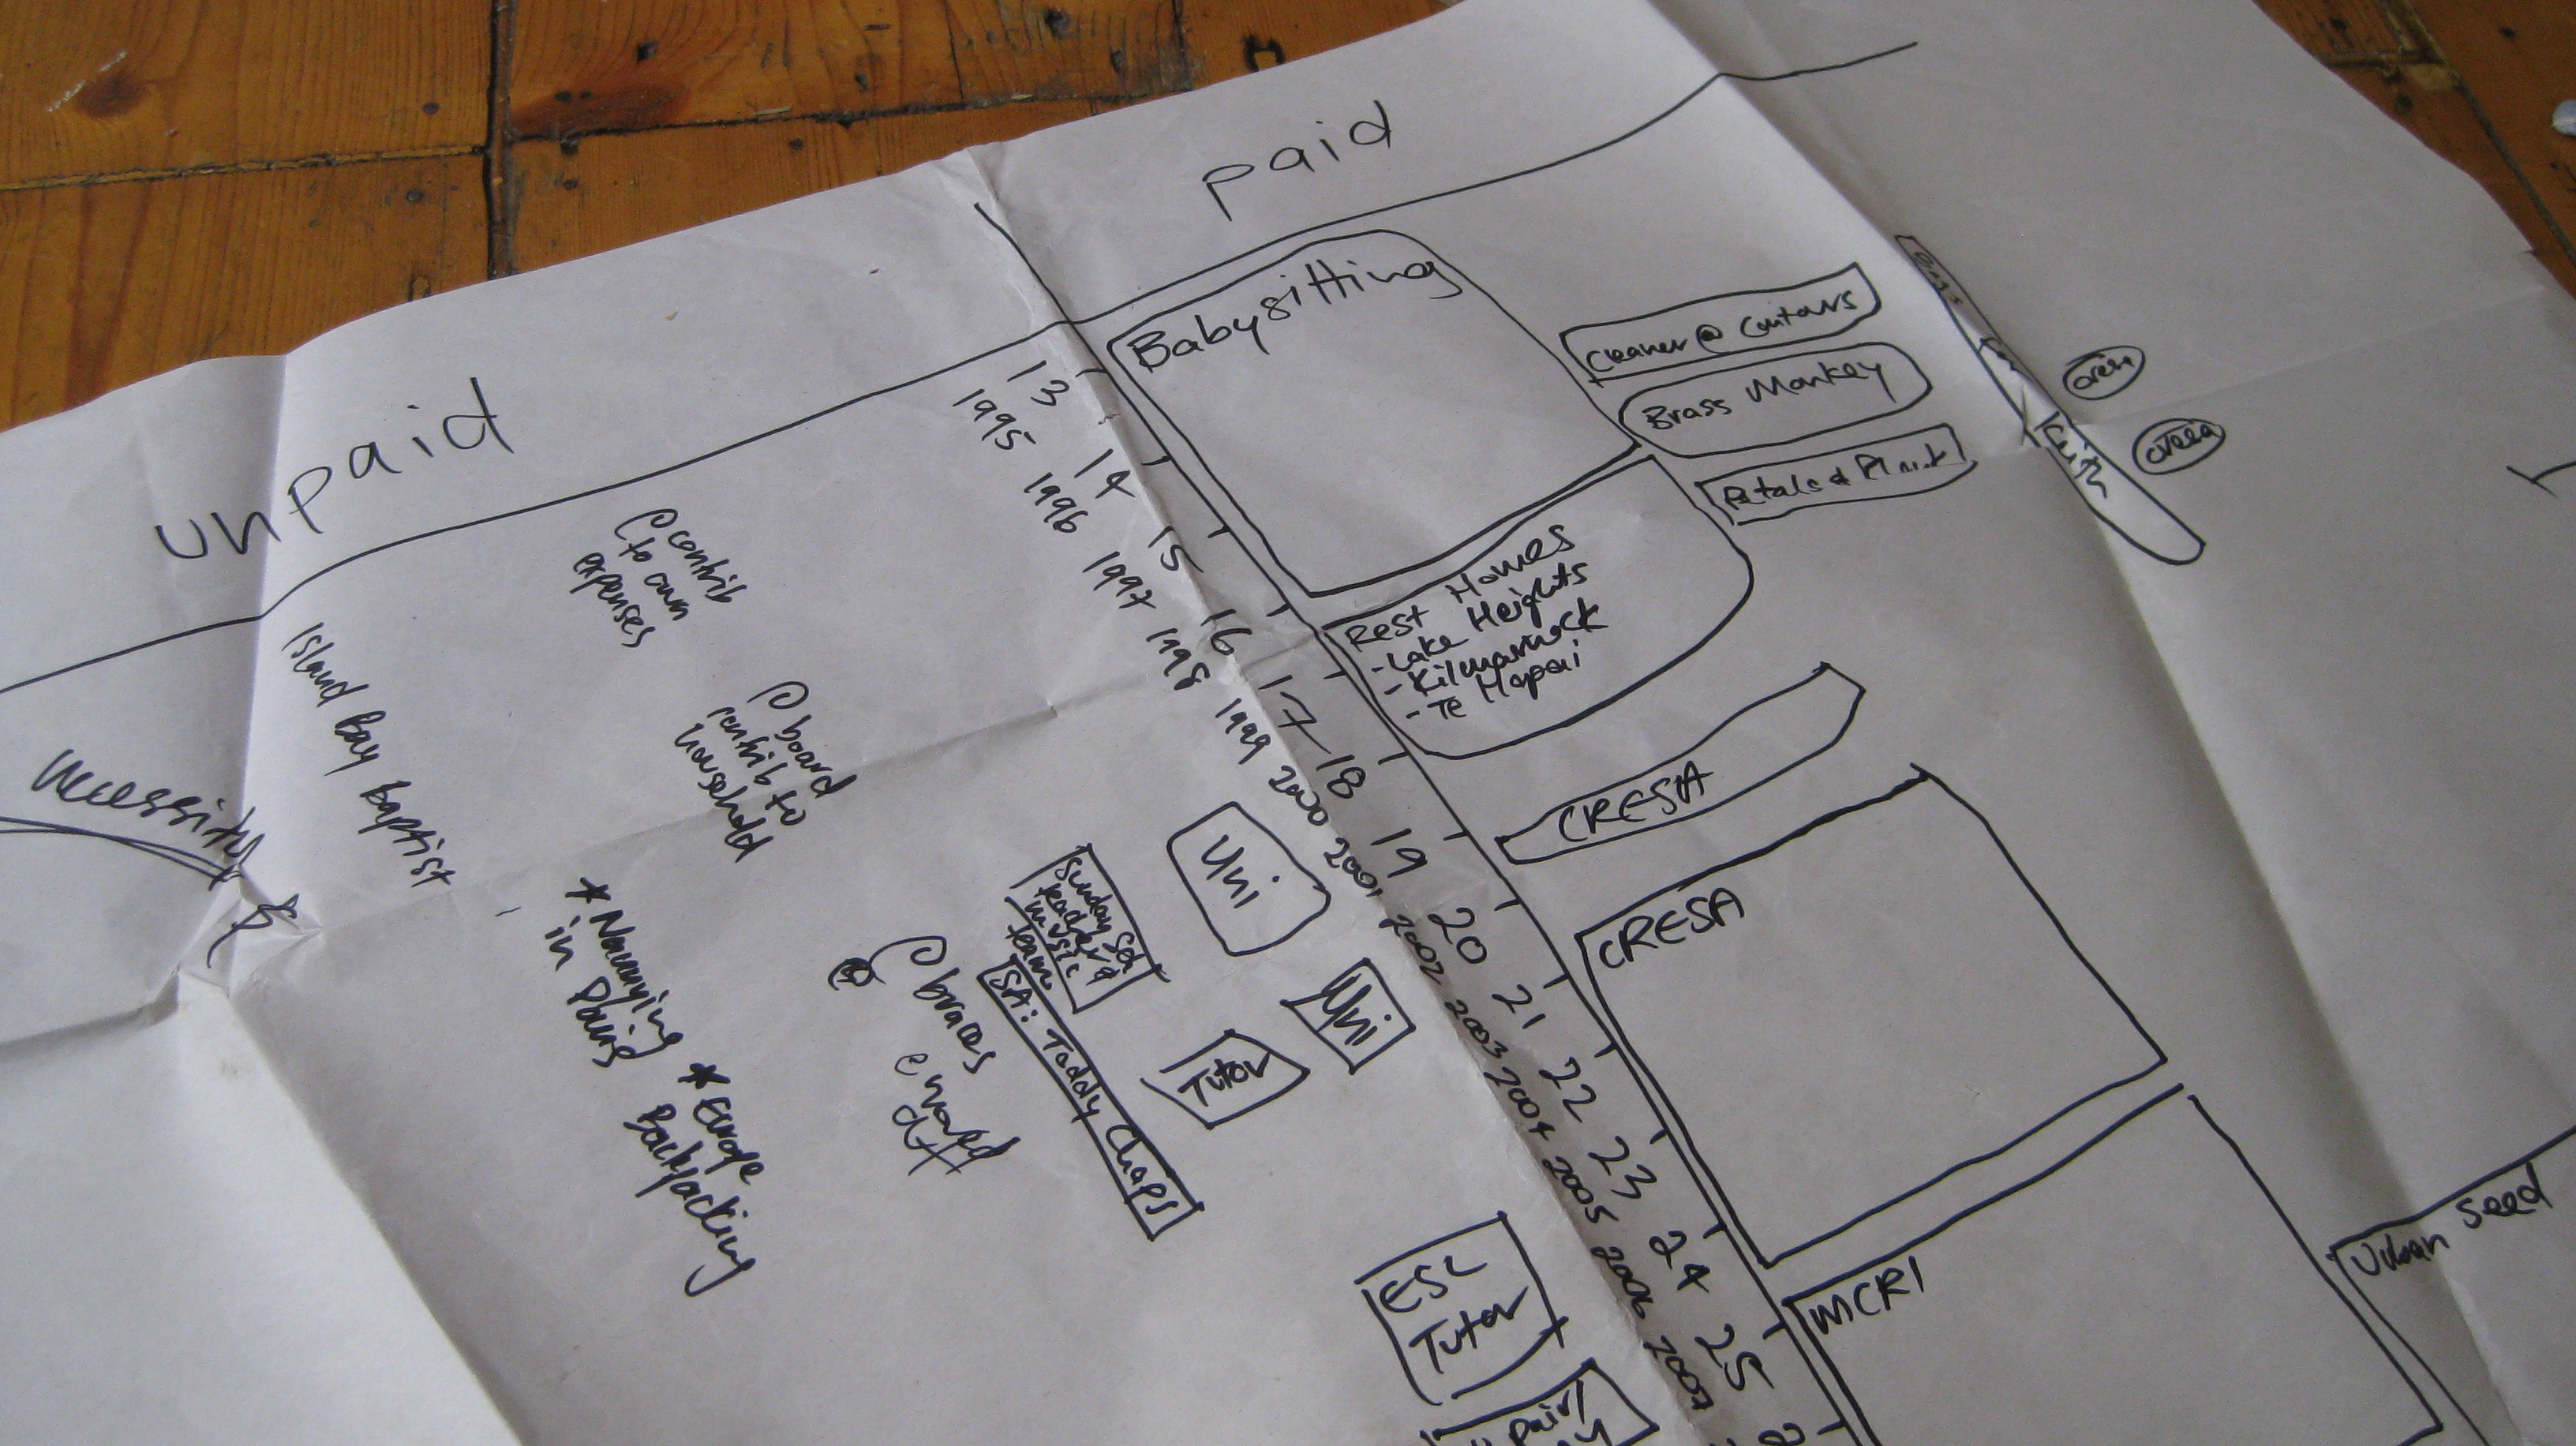 unpaid
paid
Babysitting
Cleaner @ Contours
Brass Monkey
Petals &
Rest Homes
- Lake Heights
- Kilmarnock
- Te Hopai
CRESA
CRESA
MCRI
Urban Seed
13
14
15
16
17
18
19
20
21
22
23
24
25
1995
1996
1997
1998
1999
2000
2001
2002
2003
2004
2005
2006
2007
contrib
to own
expenses
board
contrib to
household
Island Bay Baptist
necessity
* Nannying
in Paris
* Europe
Backpacking
braces
Sunday Sch
teacher &
music
team
SA: Toddy Chaps
Uni
Uni
Tutor
ESL
Tutor